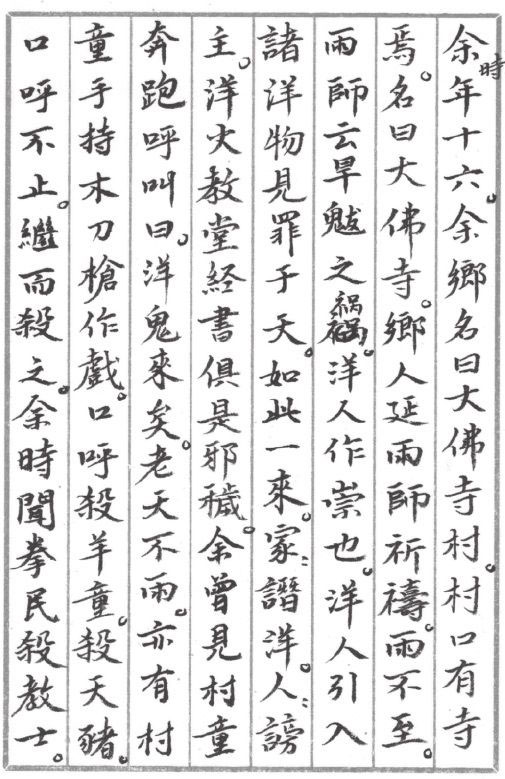 余時年十六。余鄉名曰大佛寺村。村口有寺
焉。名曰大佛寺。鄉人延雨師祈禱。雨不至。
雨師云旱魃之禍。洋人作祟也。洋人引入
諸洋物見罪于天。如此一來。家:譖洋。人:謗
主。洋火教堂経書俱是邪穢。余曾見村童
奔跑呼叫曰。洋鬼來矣。老天不雨。亦有村
童手持木刀槍作戲。口呼殺羊童。殺天豬。
口呼不止。繼而殺之。余時聞拳民殺教士。